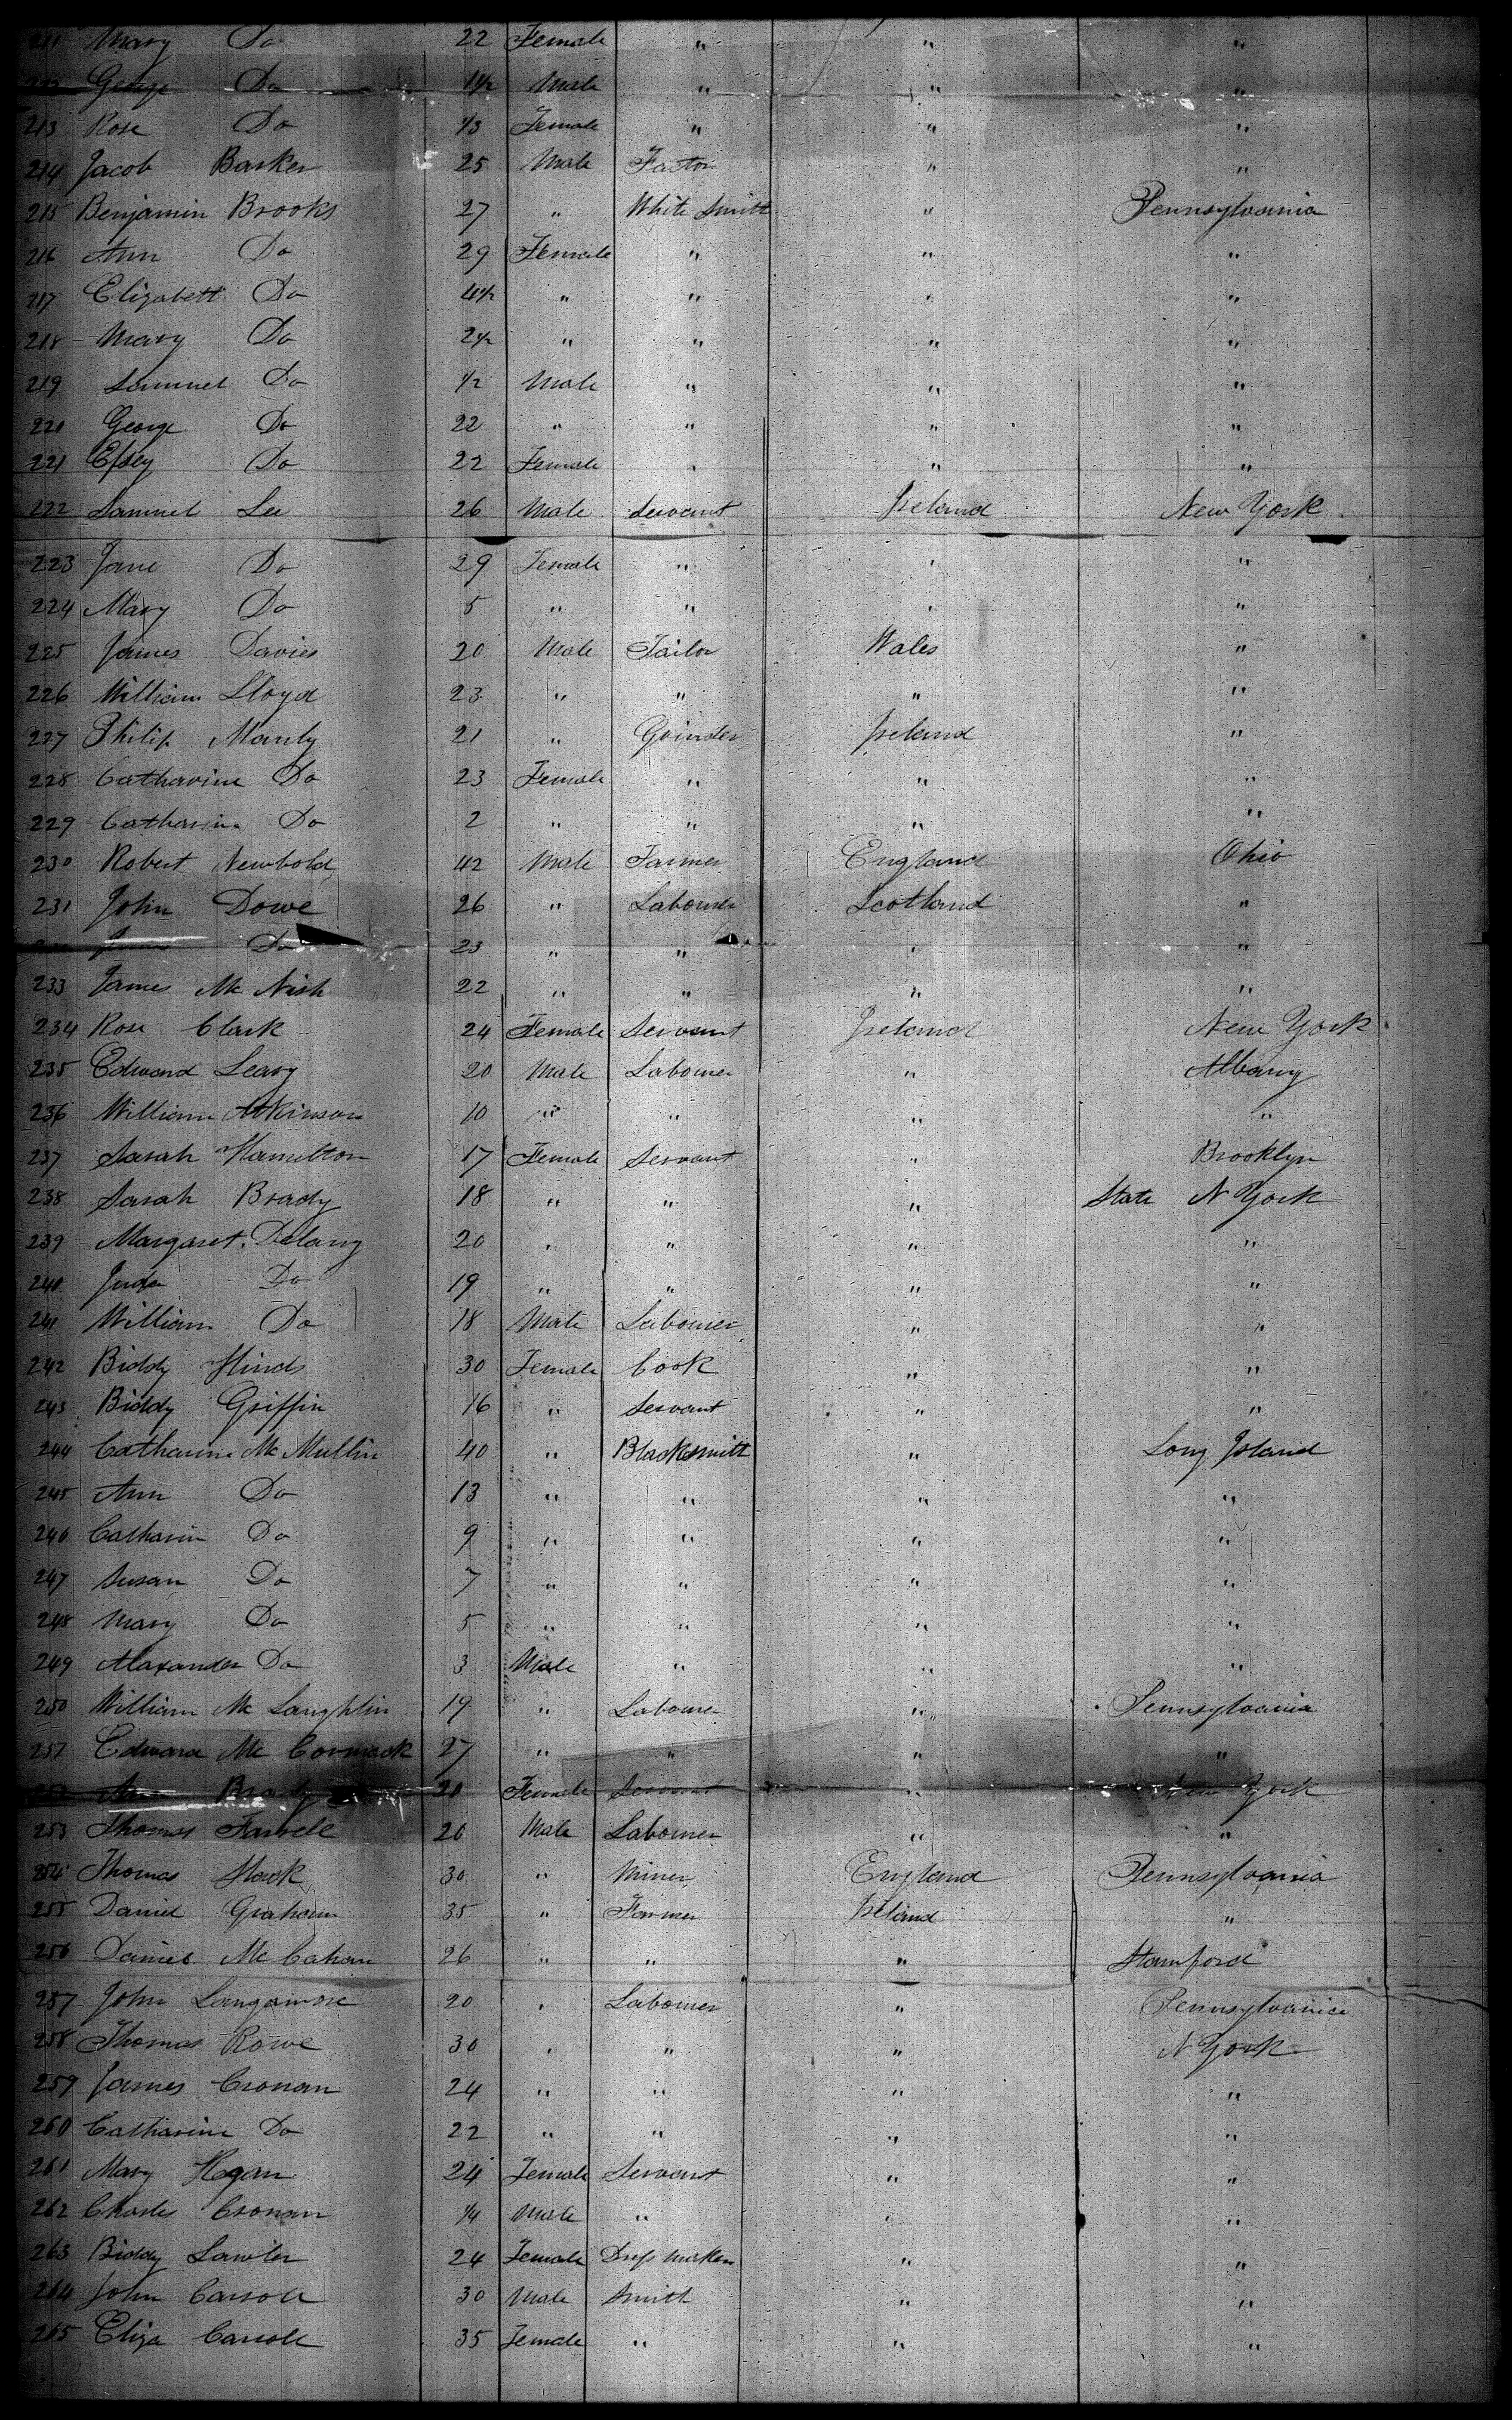 211 Mary Do 22 Female " " "
212 George Do 1½ Male " " "
213 Rose Do 1/3 Female " " "
214 Jacob Barker 25 Male Factor " "
215 Benjamin Brooks 27 " White Smith " Pennsylvania
216 Ann Do 29 Female " " "
217 Elizabeth Do 4½ " " " "
218 Mary Do 2½ " " " "
219 Samuel Do ½ Male " " "
220 George Do 22 " " " "
221 Essey Do 22 Female " " "
222 Samuel Lee 26 Male Servant Ireland New York
223 Jane Do 29 Female " " "
224 Mary Do 5 " " " "
225 James Davies 20 Male Tailor Wales "
226 William Lloyd 23 " " " "
227 Philip Manly 21 " Grinder Ireland "
228 Catharine Do 23 Female " " "
229 Catharine Do 2 " " " "
230 Robert Newbold 42 Male Farmer England Ohio
231 John Dowe 26 " Labourer Scotland "
Do 23 " " " "
233 James Mc Nish 22 " " " "
234 Rose Clark 24 Female Servant Ireland New York
235 Edward Leary 20 Male Labourer " Albany
236 William Atkinson 10 " " " "
237 Sarah Hamilton 17 Female Servant " Brooklyn
238 Sarah Brady 18 " " " State N York
239 Margaret Delany 20 " " " "
240 Juda Do 19 " " " "
241 William Do 18 Male Labourer " "
242 Biddy Hinds 30 Female Cook " "
243 Biddy Griffin 16 " Servant " "
244 Catharine Mc Mullin 40 " Blacksmith " Long Island
245 Ann Do 13 " " " "
246 Catharin Do 9 " " " "
247 Susan Do 7 " " " "
248 Mary Do 5 " " " "
249 Alaxander Do 3 Male " " "
250 William Mc Laughlin 19 " Labourer " Pennsylvania
251 Edward Mc Cormack 27 " " " "
252 Ann Brady 20 Female Servant " New York
253 Thomas Farrell 20 Male Labourer " "
254 Thomas Hawk 30 " Miner England Pennsylvania
255 Daniel Graham 35 " Farmer Ireland "
256 Daniel Mc Cahan 26 " " " Stamford
257 John Langamore 20 " Labourer " Pennsylvania
258 Thomas Rowe 30 " " " N York
259 James Cronan 24 " " " "
260 Catharine Do 22 " " " "
261 Mary Hogan 24 Female Servant " "
262 Charles Cronan ¼ Male " " "
263 Biddy Lawler 24 Female Dress Maker " "
264 John Carroll 30 Male Smith " "
265 Eliza Carroll 35 Female " " "